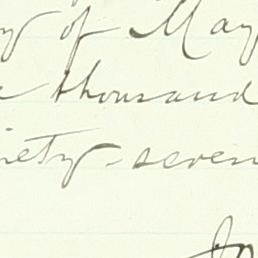 y of May
thousand
iety-seven